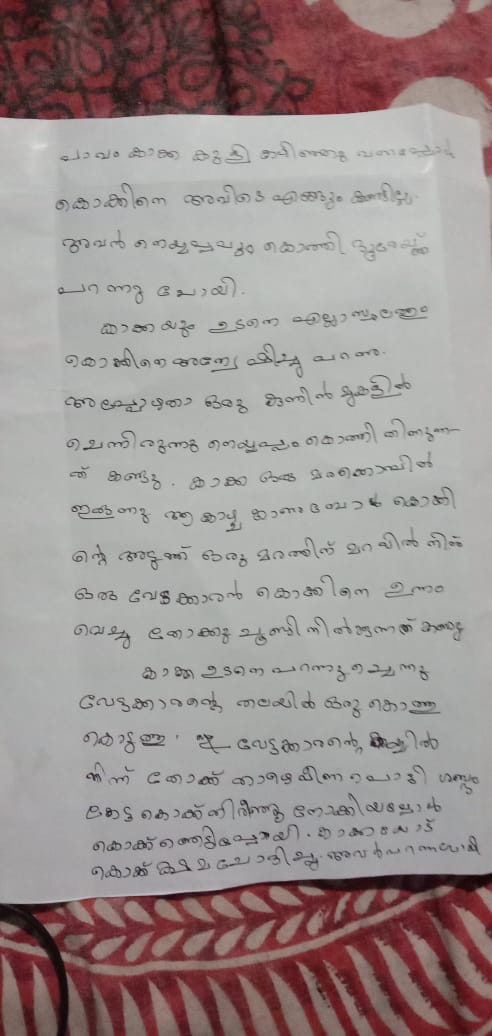 പാവം കാക്ക കുളി കഴിഞ്ഞു വന്നപ്പോൾ
കൊക്കിനെ അവിടെ എങ്ങും കണ്ടില്ല.
അവൻ നെയ്യപ്പവും കൊത്തി ദൂരേയ്ക്ക്
പറന്നു പോയി.
കാക്കയും ഉടനെ എല്ലാ സ്ഥലത്തും
കൊക്കിനെ അന്വേഷിച്ചു പറന്നു.
അപ്പോഴതാ ഒരു കുന്നിൻ മുകളിൽ
ചെന്നിരുന്നു നെയ്യപ്പം കൊത്തി തിന്നുന്ന
ത് കണ്ടു. കാക്ക ഒരു മരക്കൊമ്പിൽ
ഇരുന്നു ആ കാഴ്ച കാണുമ്പോൾ കൊക്കി
ന്റെ അടുത്ത് ഒരു മരത്തിന് മറയിൽ നിന്ന്
ഒരു വേട്ടക്കാരൻ കൊക്കിനെ ഉന്നം
വെച്ചു തോക്കു ചൂണ്ടി നിൽക്കുന്നത് കണ്ടു
കാക്ക ഉടനെ പറന്നു ചെന്നു
വേട്ടക്കാരന്റെ തലയിൽ ഒരു കൊത്തു
കൊടുത്തു. വേട്ടക്കാരന്റെ കയ്യിൽ
നിന്ന് തോക്ക് താഴെ വീണു പൊട്ടി ശബ്ദം
കേട്ട കൊക്ക് തിരിഞ്ഞു നോക്കിയപ്പോൾ
കൊക്ക് ഞെട്ടിപ്പോയി. കാക്കയോട്
കൊക്ക് ക്ഷമ ചോദിച്ചു. അവർ പറന്നുപോയി